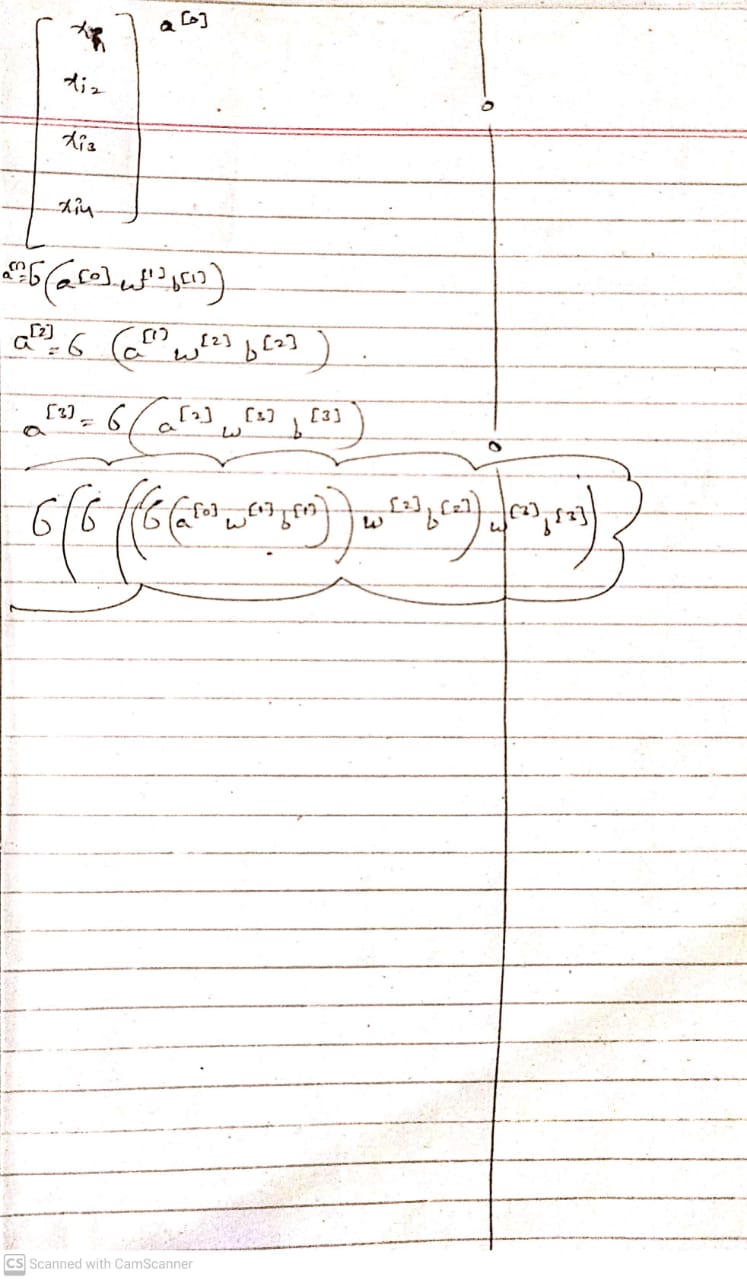 a[0]
xi2
xi3
xi4
a[1] = 6(a[0] w[1] b[1])
a[2] = 6 (a[1] w[2] b[2])
a[3] = 6(a[2] w[3] b[3])
6(6((6(a[0] w[1] b[1])) w[2] b[2]) w[3] b[3])
CS Scanned with CamScanner